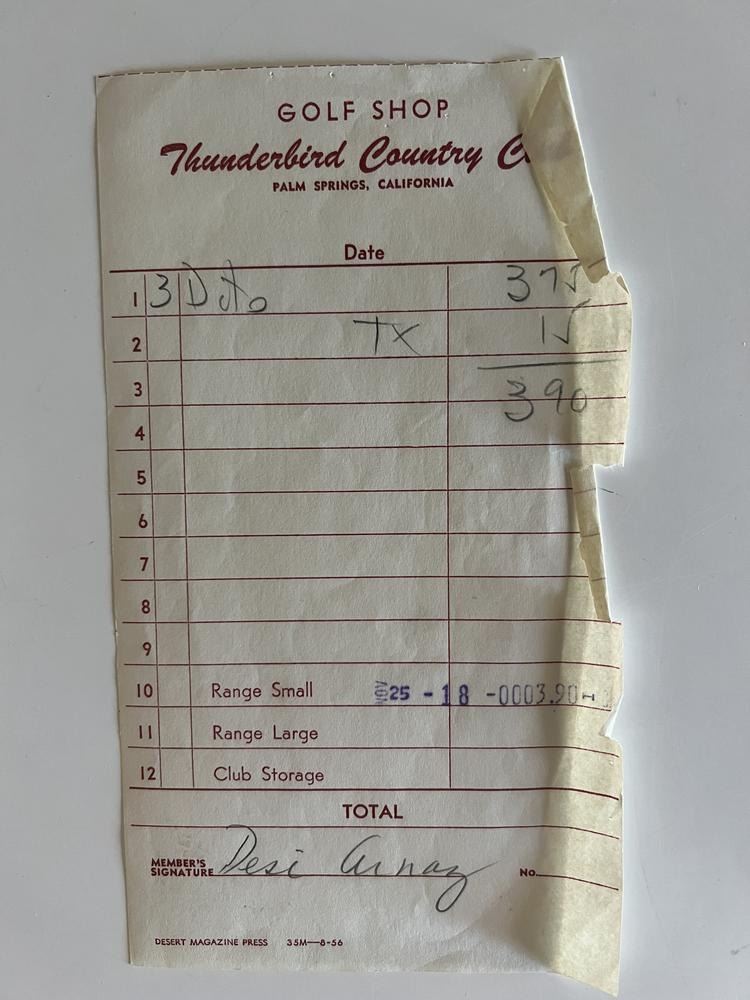 GOLF SHOP
Thunderbird Country
PALM SPRINGS, CALIFORNIA
Date
1 3 375
2 TX 15
3 390
4
5
6
7
8
9
10 Range Small NOV 25 - 18 -0003.90
11 Range Large
12 Club Storage
TOTAL
MEMBER'S
SIGNATURE Desi Arnaz No.
DESERT MAGAZINE PRESS 35M—8-56